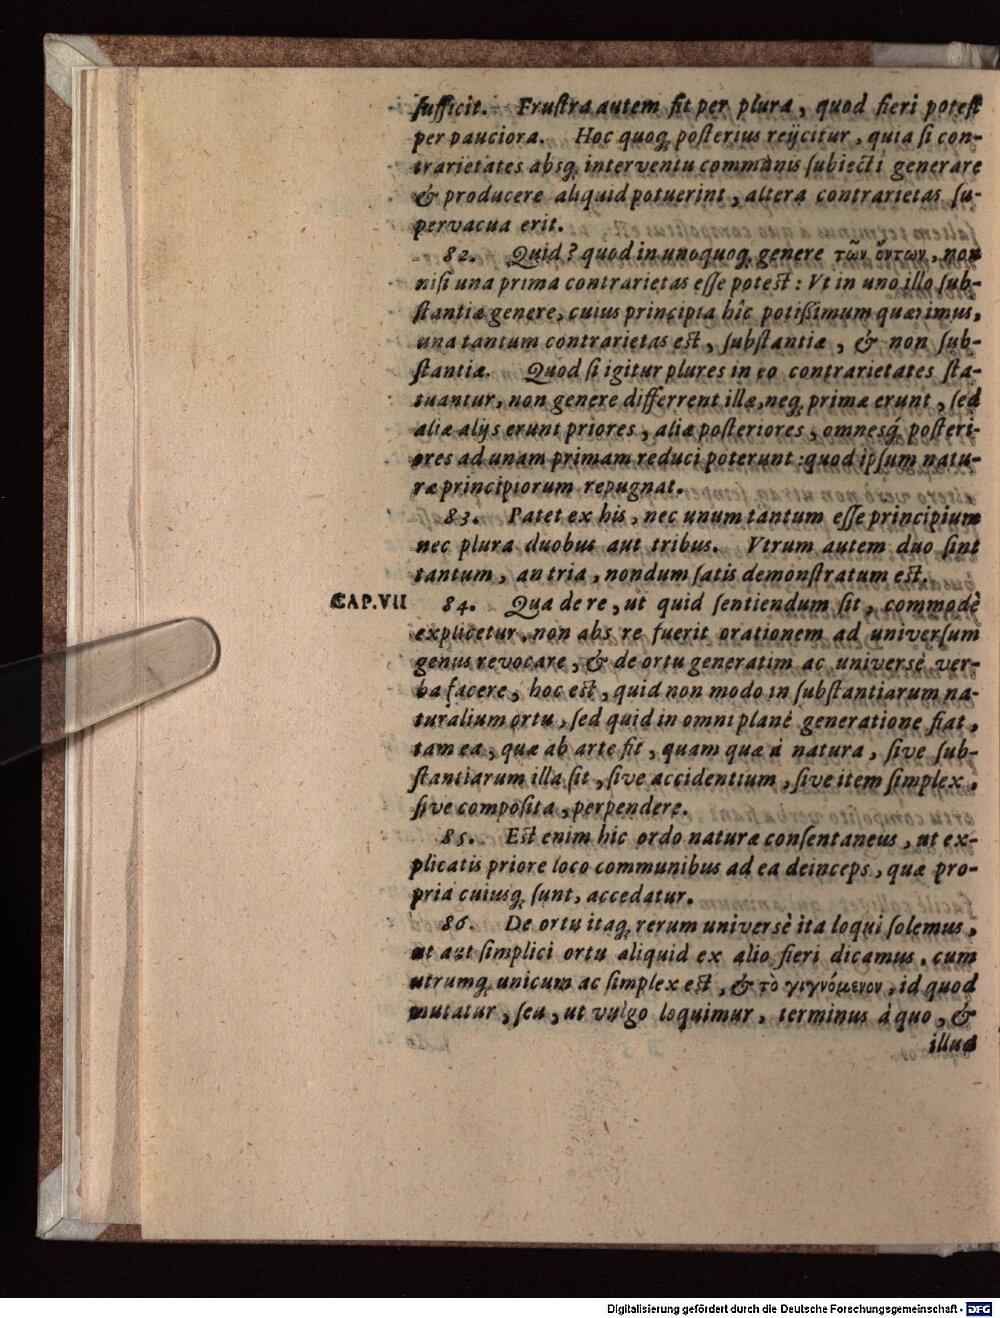 ſufficit. Fruſtra autem fit per plura, quod fieri poteſt
per pauciora. Hoc quoq; poſterius reijcitur, quia ſi con-
trarietates absq; interventu communis ſubiecti generare
& producere aliquid potuerint, altera contrarietas ſu-
pervacua erit.
82. Quid? quod in unoquoq; genere τῶν ὄντων, non
niſi una prima contrarietas eſſe poteſt: Vt in uno illo ſub-
ſtantiæ genere, cuius principia hîc potiſſimum quærimus,
una tantum contrarietas eſt, ſubſtantiæ, & non ſub-
ſtantiæ. Quod ſi igitur plures in eo contrarietates ſta-
tuantur, non genere differrent illæ, neq; primæ erunt, ſed
aliæ alijs erunt priores, aliæ poſteriores, omnesq́; poſteri-
ores ad unam primam reduci poterunt: quod ipſum natu-
ræ principiorum repugnat.
83. Patet ex his, nec unum tantum eſſe principium
nec plura duobus aut tribus. Vtrum autem duo ſint
tantum, an tria, nondum ſatis demonſtratum eſt.
CAP. VII 84. Qua de re, ut quid ſentiendum ſit, commodè
explicetur, non abs re fuerit orationem ad univerſum
genus revocare, & de ortu generatim ac universè ver-
ba facere, hoc eſt, quid non modo in ſubſtantiarum na-
turalium ortu, ſed quid in omni planè generatione fiat,
tam ea, quæ ab arte fit, quam quæ à natura, ſive ſub-
ſtantiarum illa ſit, ſive accidentium, ſive item ſimplex,
ſive compoſita, perpendere.
85. Eſt enim hic ordo naturæ conſentaneus, ut ex-
plicatis priore loco communibus ad ea deinceps, quæ pro-
pria cuiusq; ſunt, accedatur.
86. De ortu itaq; rerum universè ita loqui ſolemus,
ut aut ſimplici ortu aliquid ex alio fieri dicamus, cum
utrumq; unicum ac ſimplex eſt, & τὸ γιγνόμενον, id quod
mutatur, ſeu, ut vulgo loquimur, terminus à quo, &
illud
Digitalisierung gefördert durch die Deutsche Forschungsgemeinschaft - DFG